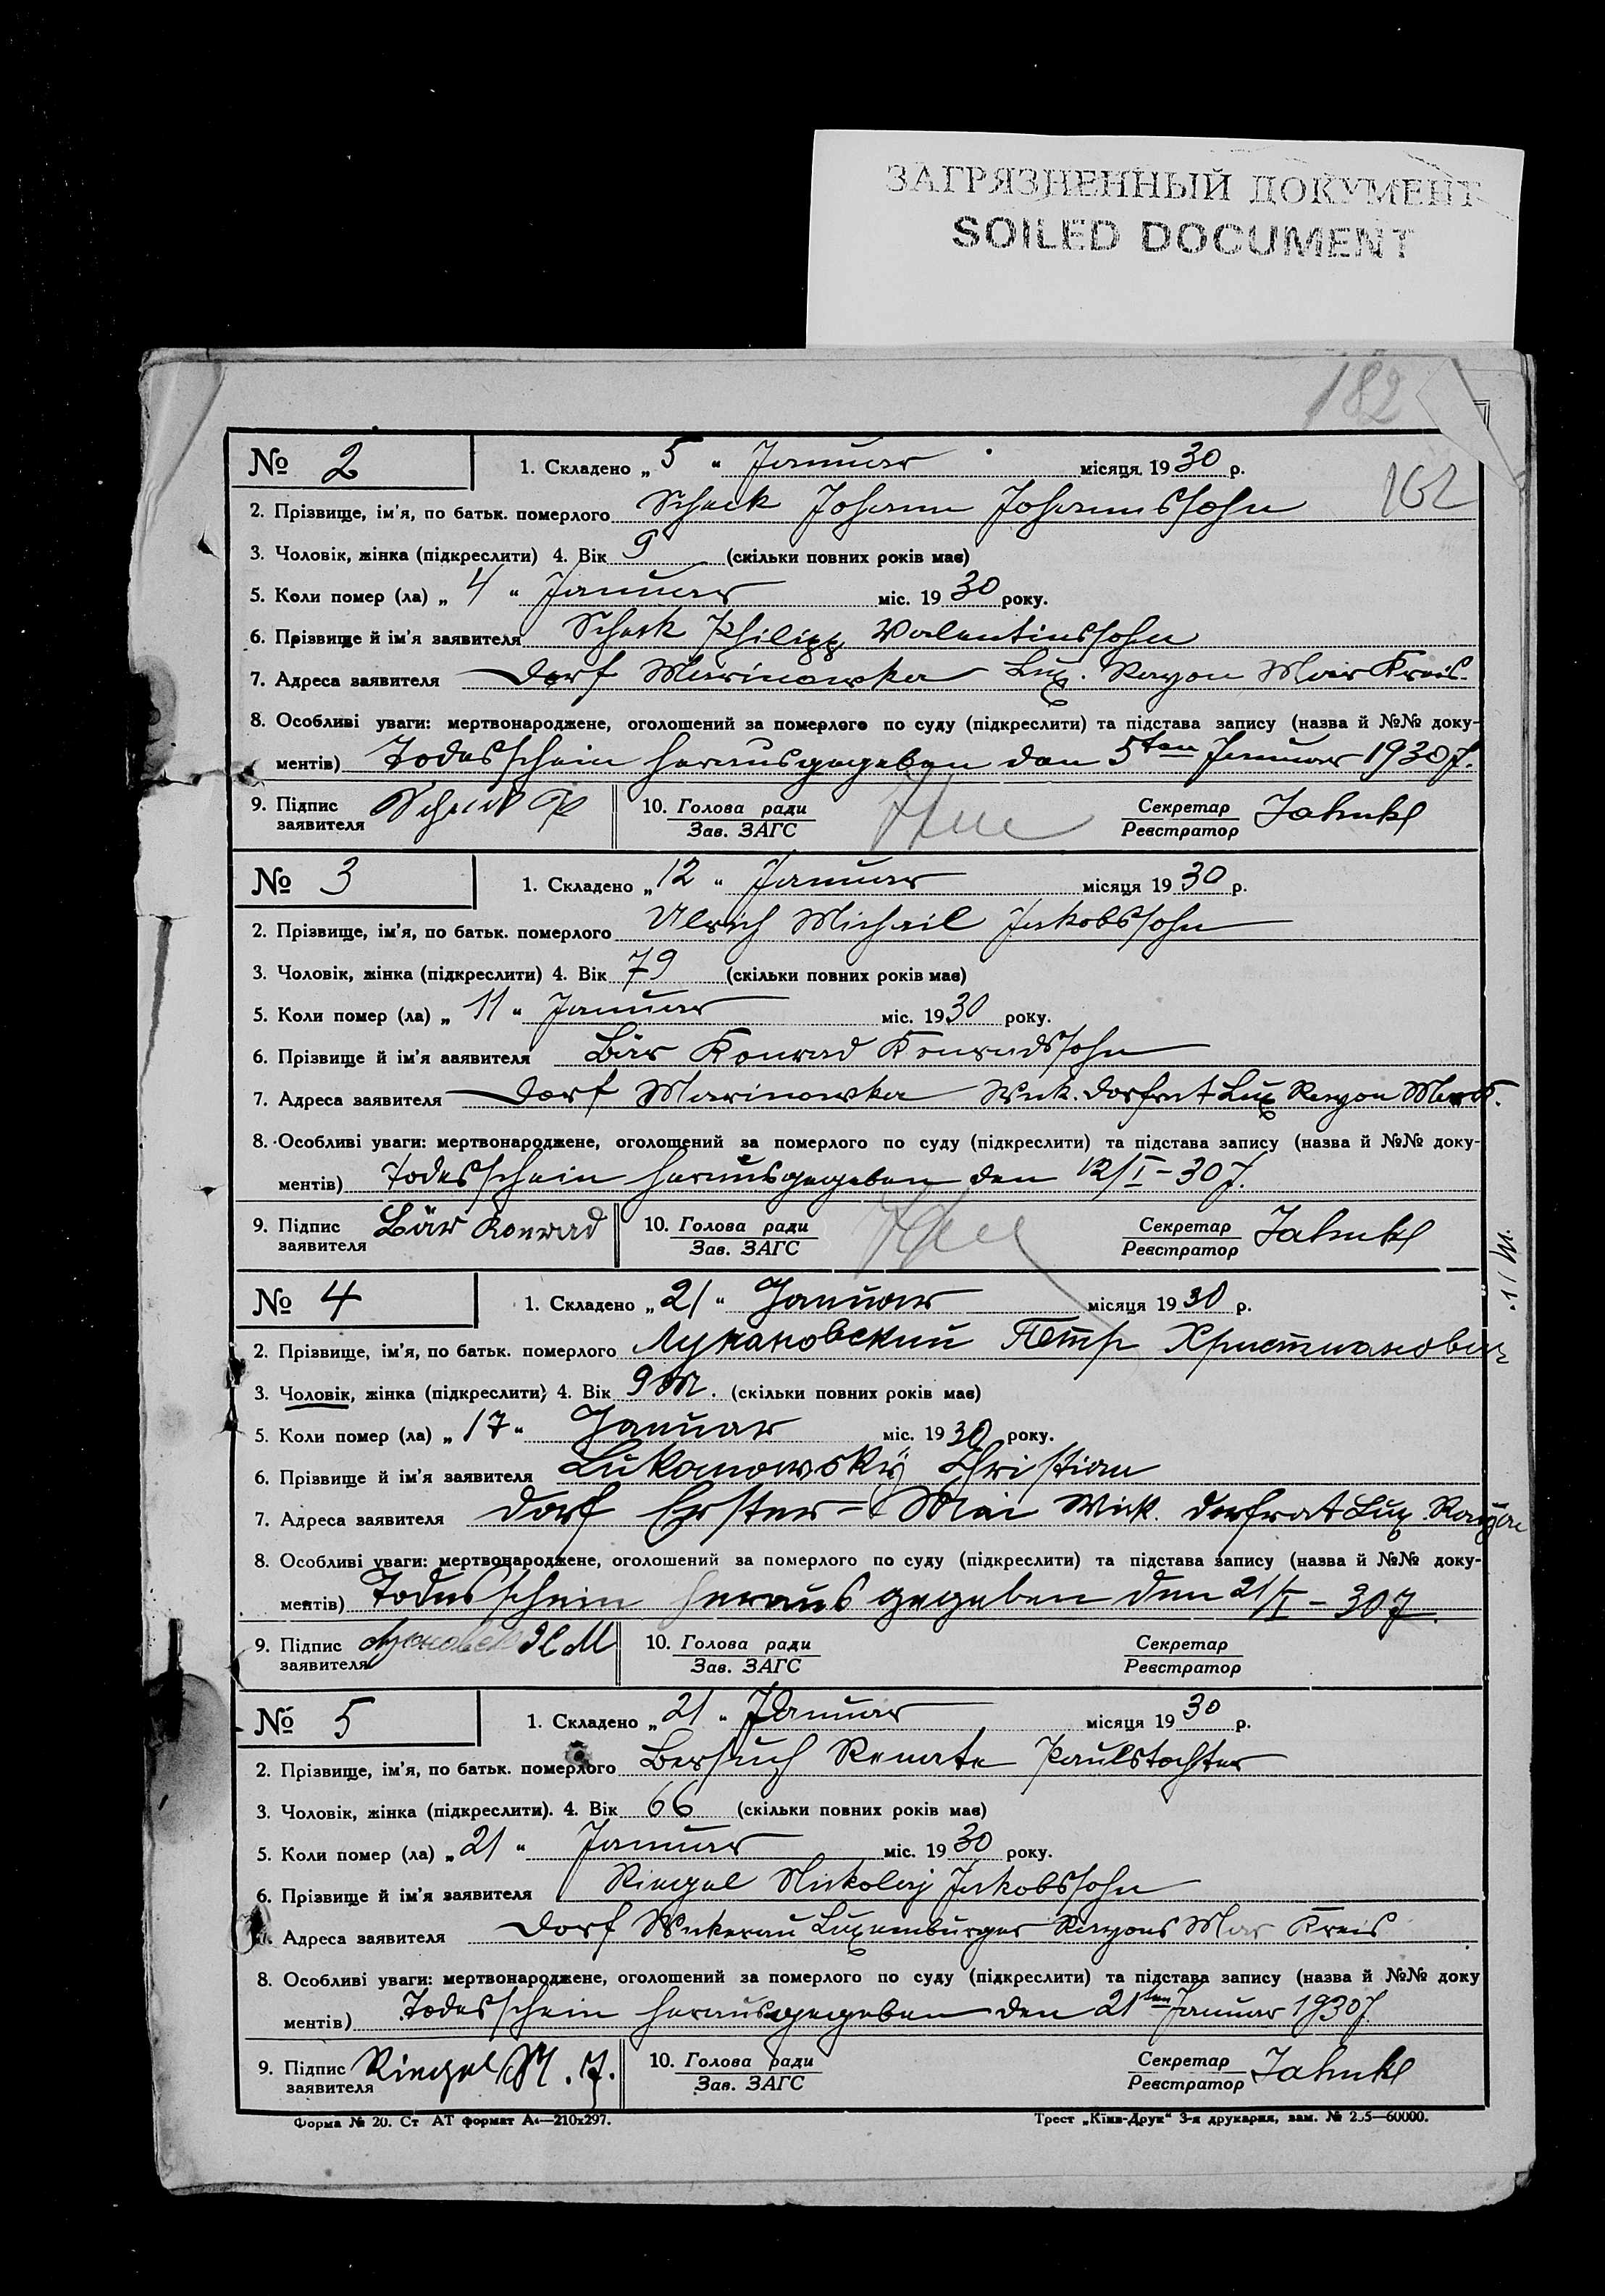 ЗАГРЯЗНЕННЫЙ ДОКУМЕНТ
SOILED DOCUMENT
182
162
№ 2 1. Складено „5“ Januar місяця 1930 р.
2. Прізвище, ім'я, по батьк. померлого Scheck Johann Johannssohn
3. Чоловік, жінка (підкреслити) 4. Вік 9 (скільки повних років має)
5. Коли помер (ла) „4“ Januar міс. 1930 року.
6. Прізвище й ім'я заявителя Scheck Philipp Valentinssohn
7. Адреса заявителя Dorf Marinowka Lux. Rayon Mar Kreis.
8. Особливі уваги: мертвонароджене, оголошений за померлого по суду (підкреслити) та підстава запису (назва й №№ доку-
ментів) Todesschein herausgegeben den 5ten Januar 1930 J.
9. Підпис заявителя 10. Голова ради Зав. ЗАГС Секретар Реєстратор Jahnke
№ 3 1. Складено „12“ Januar місяця 1930 р.
2. Прізвище, ім'я, по батьк. померлого Ulrich Michail Jakobssohn
3. Чоловік, жінка (підкреслити) 4. Вік 79 (скільки повних років має)
5. Коли помер (ла) „11“ Januar міс. 1930 року.
6. Прізвище й ім'я заявителя Bär Konrad Konradssohn
7. Адреса заявителя Dorf Marinowka Wick. Dorfrat Lux Rayon
8. Особливі уваги: мертвонароджене, оголошений за померлого по суду (підкреслити) та підстава запису (назва й №№ доку-
ментів) Todesschein herausgegeben den 12/I-30 J.
9. Підпис заявителя Bär Konrad 10. Голова ради Зав. ЗАГС Секретар Реєстратор Jahnke
№ 4 1. Складено „21“ Januar місяця 1930 р.
2. Прізвище, ім'я, по батьк. померлого Лукановский Петр Христианович
3. Чоловік, жінка (підкреслити) 4. Вік 9 M. (скільки повних років має)
5. Коли помер (ла) „17“ Januar міс. 1930 року.
6. Прізвище й ім'я заявителя Lukanowskij Christian
7. Адреса заявителя Dorf Erster-Mai Wick. Dorfrat Lux. Rayon
8. Особливі уваги: мертвонароджене, оголошений за померлого по суду (підкреслити) та підстава запису (назва й №№ доку-
ментів) Todesschein herausgegeben den 21/I-30 J.
9. Підпис заявителя 10. Голова ради Зав. ЗАГС Секретар Реєстратор
№ 5 1. Складено „21“ Januar місяця 1930 р.
2. Прізвище, ім'я, по батьк. померлого Bersuch Renate Paulstochter
3. Чоловік, жінка (підкреслити). 4. Вік 66 (скільки повних років має)
5. Коли помер (ла) „21“ Januar міс. 1930 року.
6. Прізвище й ім'я заявителя Riegel Nikolaj Jakobssohn
7. Адреса заявителя Dorf Wickerau Luxemburger Rayons Mar Kreis
8. Особливі уваги: мертвонароджене, оголошений за померлого по суду (підкреслити) та підстава запису (назва й №№ доку
ментів) Todesschein herausgegeben den 21ten Januar 1930 J.
9. Підпис заявителя Riegel N. J. 10. Голова ради Зав. ЗАГС Секретар Реєстратор Jahnke
Форма № 20. Ст АТ формат А4—210x297. Трест „Київ-Друк“ 3-я друкарня, зам. № 235—60000.